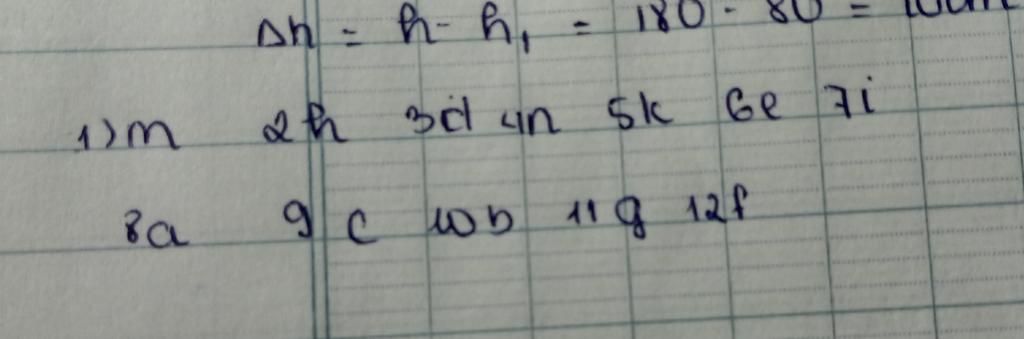 Δh = h - h₁ = 180 - 80 = 100cm
1) m 2h 3d 4n 5k 6e 7i
8a 9c 10b 11g 12f